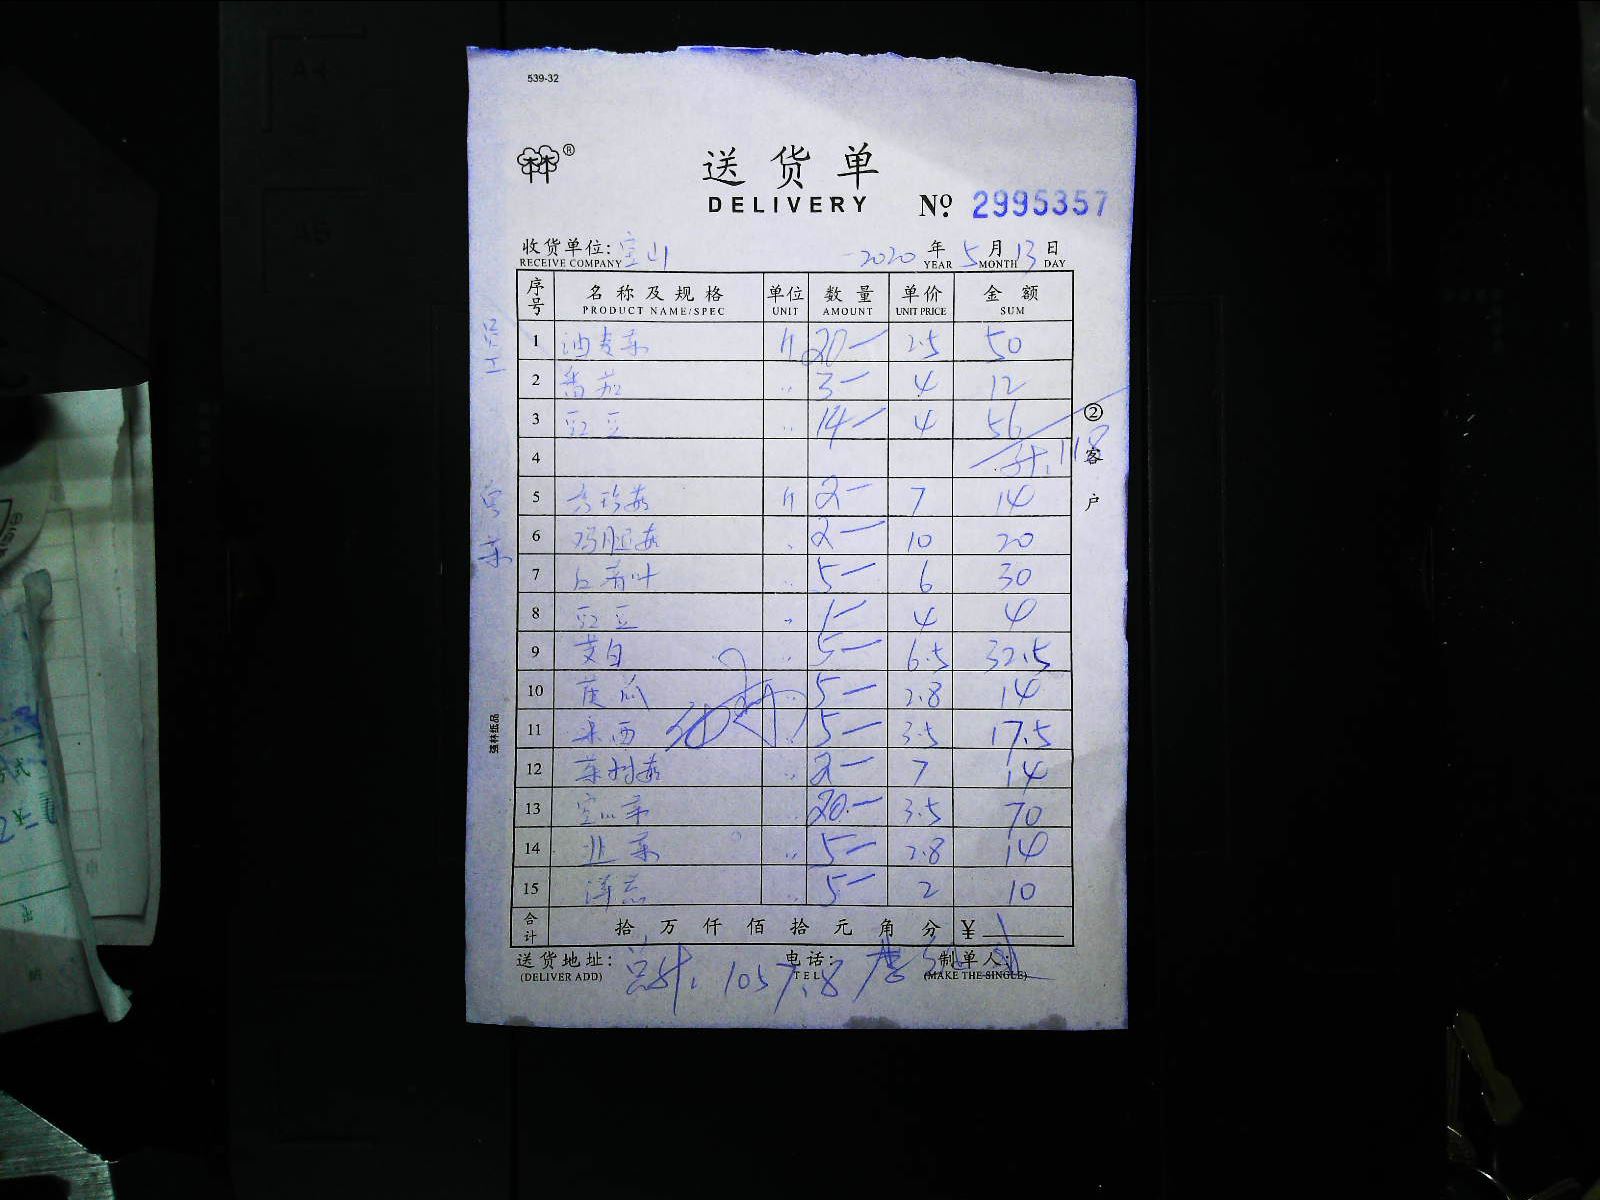 539-32
送货单
DELIVERY
№ 2995357
收货单位: 宝山 2020年5月13日
RECEIVE COMPANY YEAR MONTH DAY
序号 名称及规格 单位 数量 单价 金额
PRODUCT NAME/SPEC UNIT AMOUNT UNIT PRICE SUM
员工
1 油麦菜 斤 20— 2.5 50
2 番茄 〃 3— 4 12
3 豇豆 〃 14— 4 56
4 计. 118
② 客户
5 秀珍菇 斤 2— 7 14
6 鸡腿菇 〃 2— 10 20
7 5— 6 30
8 豇豆 〃 1— 4 4
9 茭白 〃 5— 6.5 32.5
10 瓜 〃 5— 2.8 14
11 西 〃 5— 3.5 17.5
12 茶树菇 〃 2— 7 14
13 空心菜 〃 20.— 3.5 70
14 韭菜 〃 5— 2.8 14
15 洋葱 〃 5— 2 10
强林纸品
合计 拾万仟佰拾元角分 ¥
送货地址: 电话: 制单人:
(DELIVER ADD) TEL (MAKE THE SINGLE)
总计. 1057.8